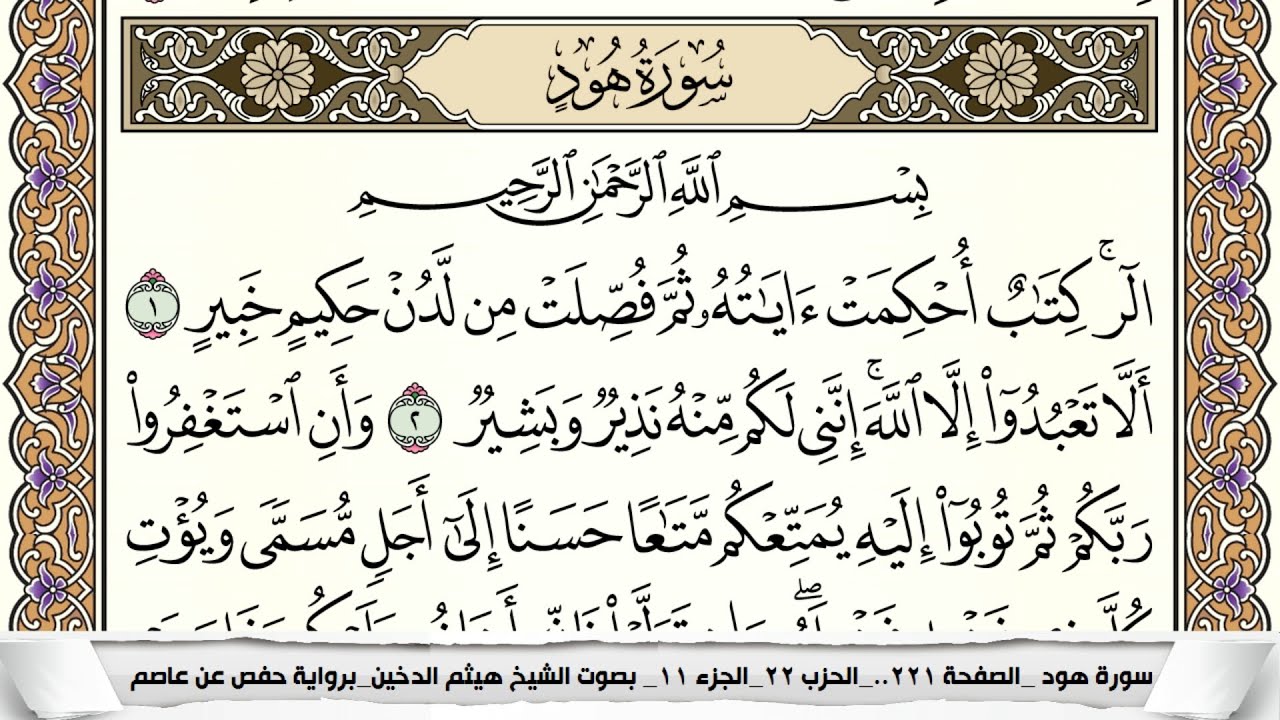 سُورَةُ هُودٍ
بِسْمِ ٱللَّهِ ٱلرَّحْمَٰنِ ٱلرَّحِيمِ
الٓرۚ كِتَٰبٌ أُحْكِمَتْ ءَايَٰتُهُۥ ثُمَّ فُصِّلَتْ مِن لَّدُنْ حَكِيمٍ خَبِيرٍ ١
أَلَّا تَعْبُدُوٓا۟ إِلَّا ٱللَّهَۚ إِنَّنِى لَكُم مِّنْهُ نَذِيرٌ وَبَشِيرٌ ٢ وَأَنِ ٱسْتَغْفِرُوا۟
رَبَّكُمْ ثُمَّ تُوبُوٓا۟ إِلَيْهِ يُمَتِّعْكُم مَّتَٰعًا حَسَنًا إِلَىٰٓ أَجَلٍ مُّسَمًّى وَيُؤْتِ
سورة هود _الصفحة ٢٢١.._الحزب ٢٢_الجزء ١١_ بصوت الشيخ هيثم الدخين_برواية حفص عن عاصم